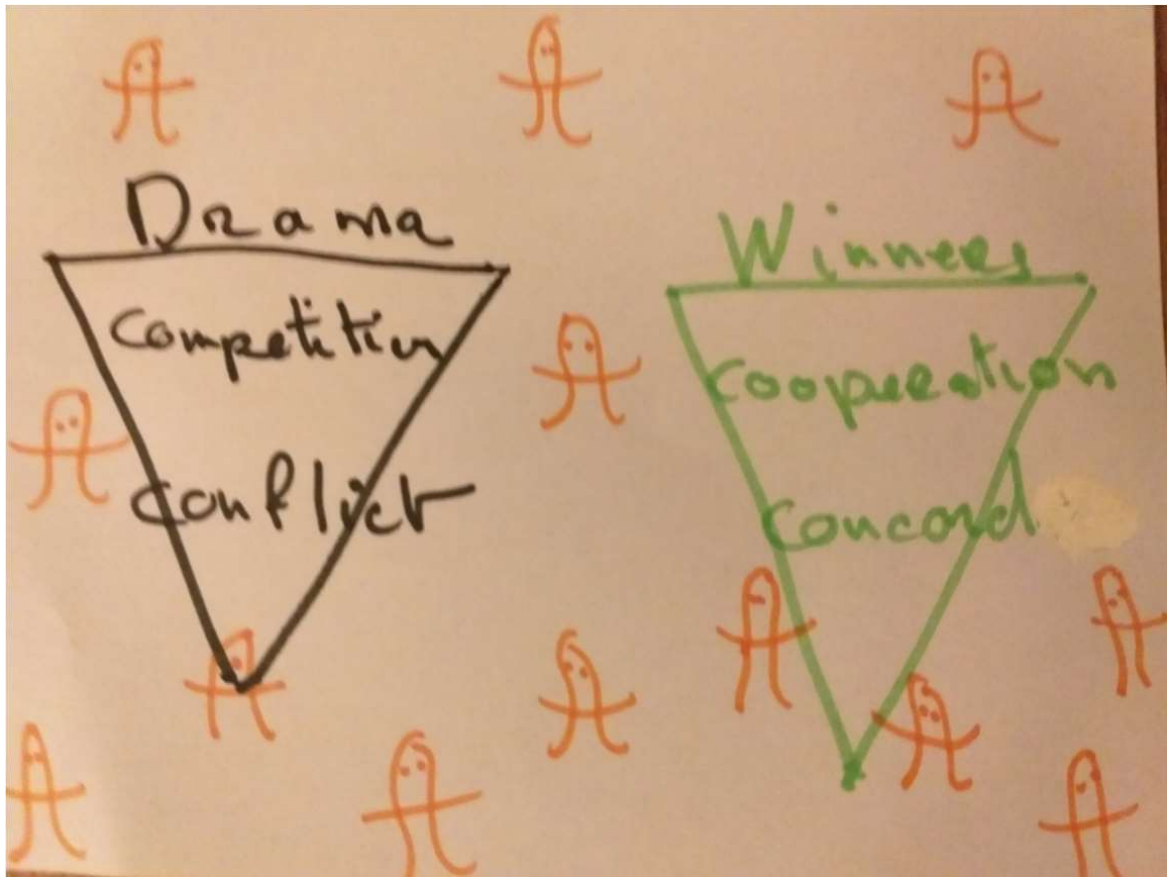 Drama
Competition
Conflict
Winners
Cooperation
Concord